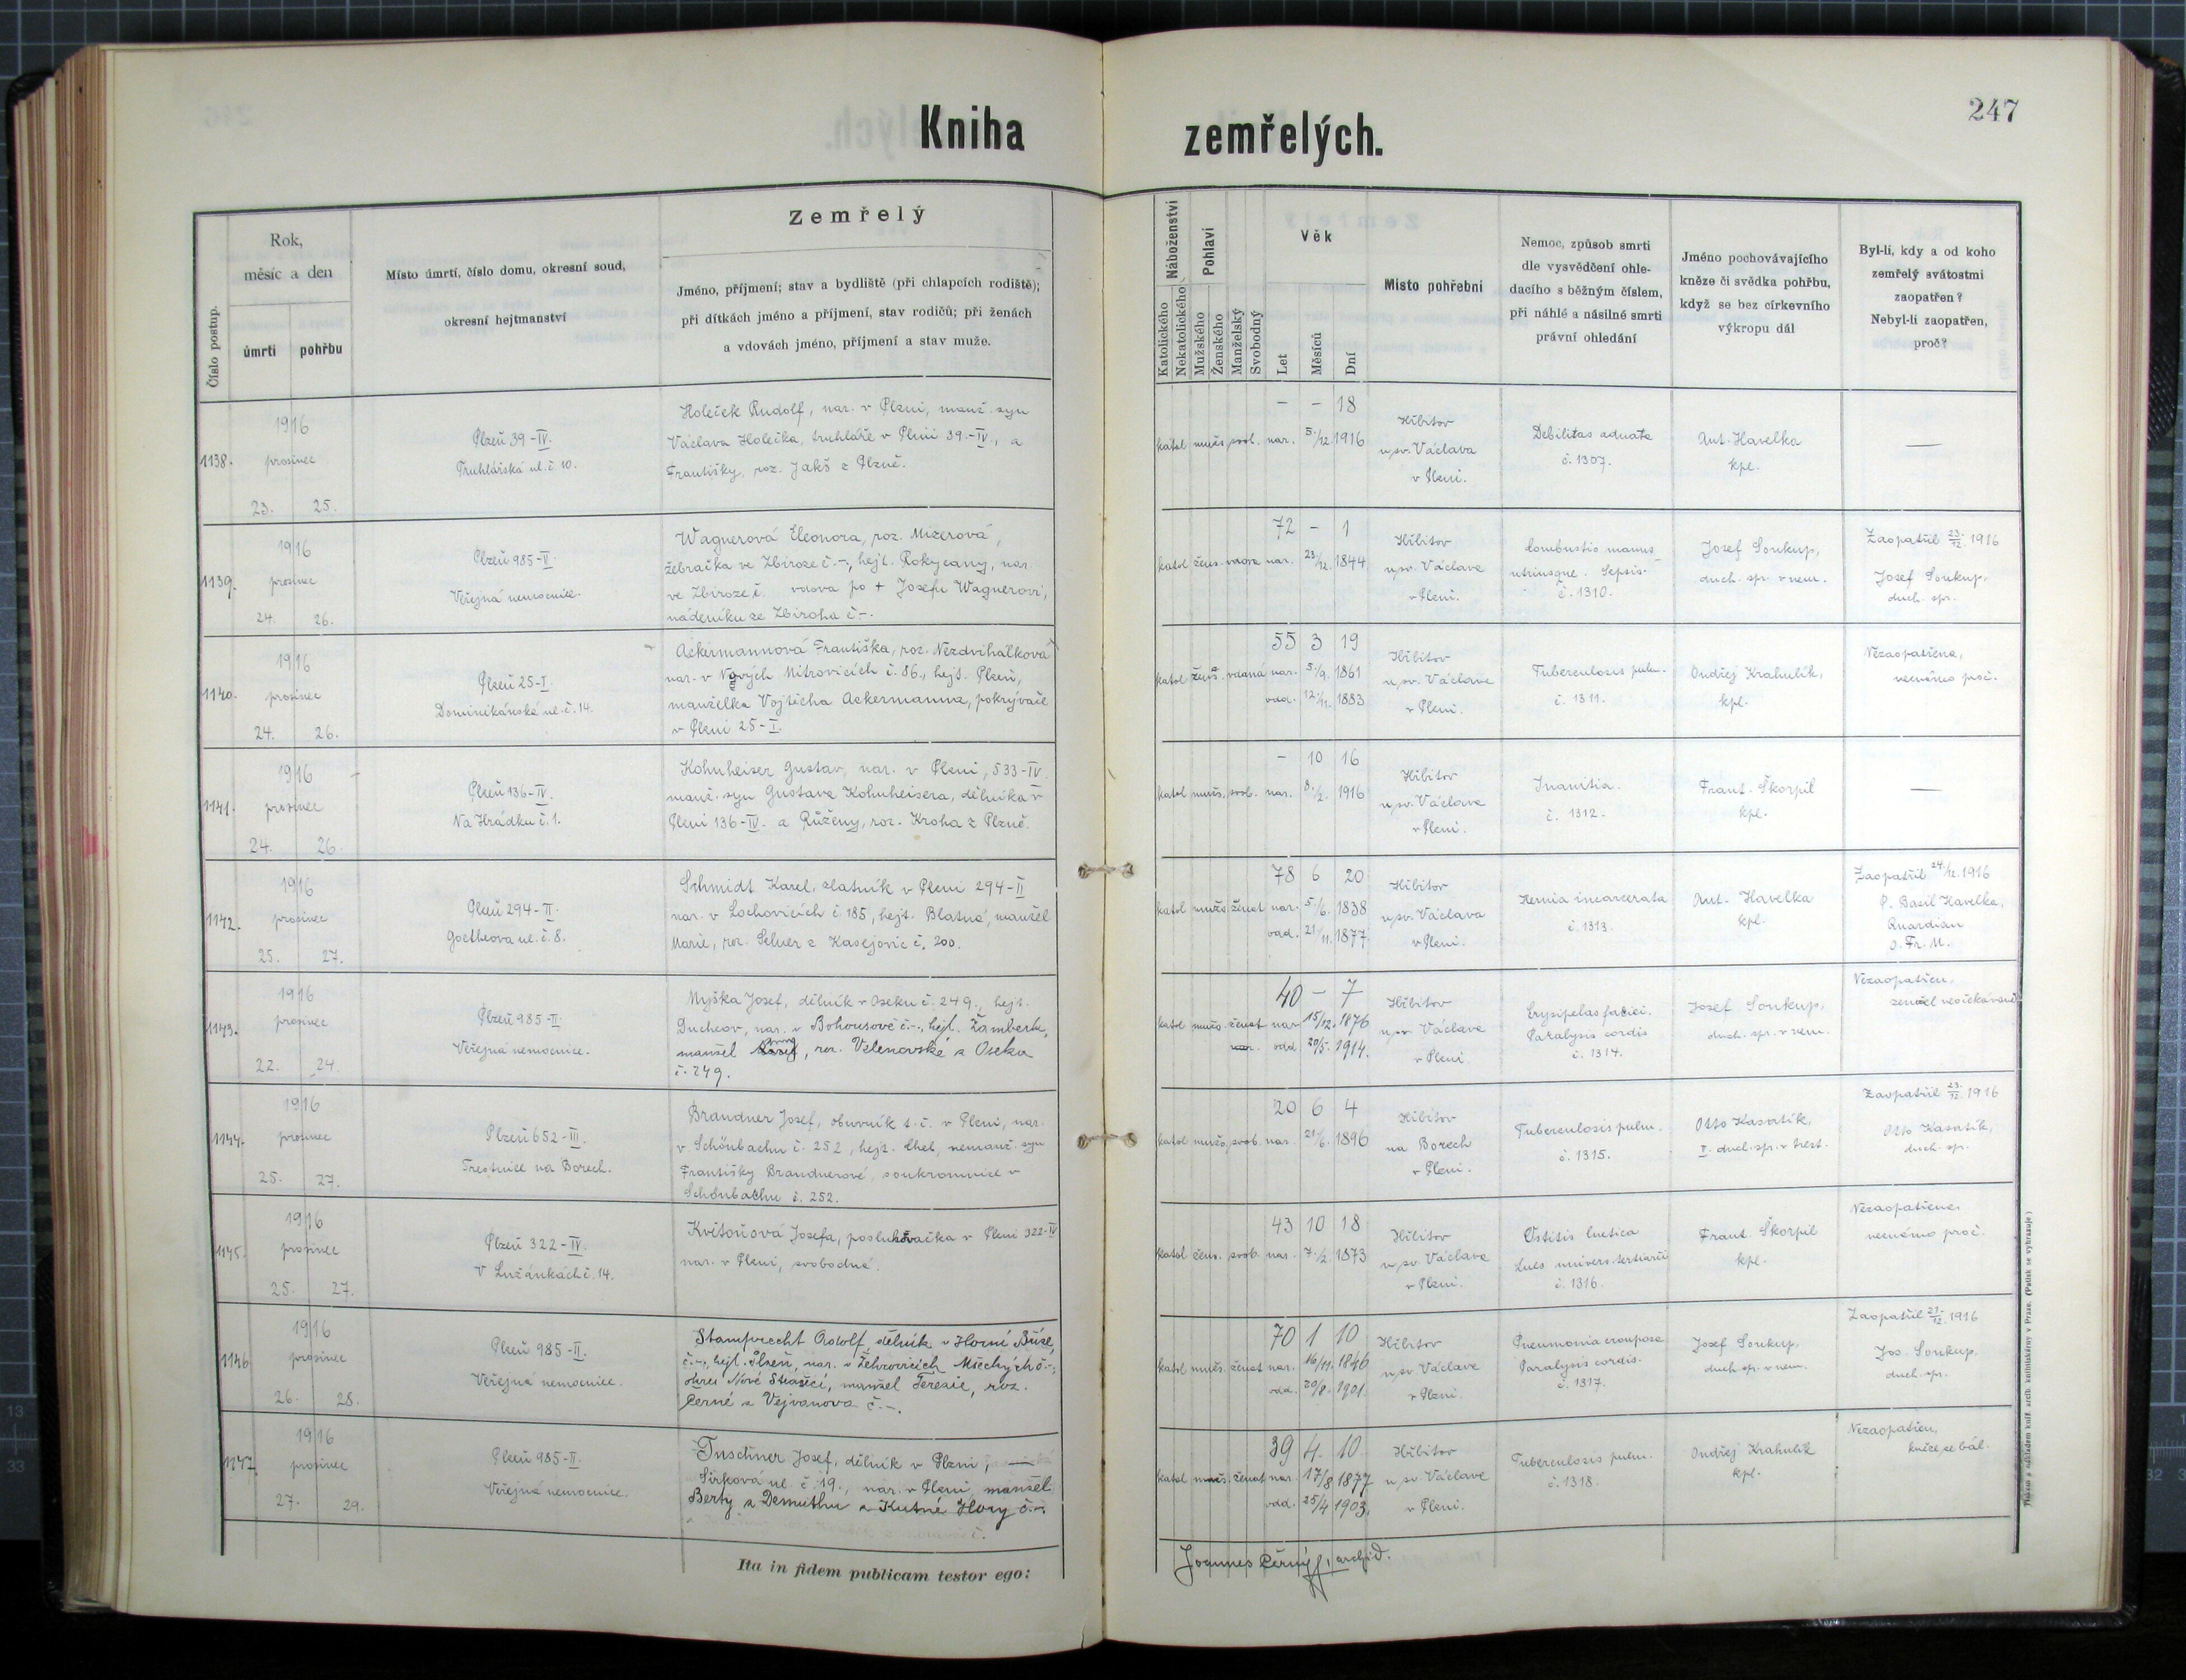 247
Kniha zemřelých.
Číslo postup.
Rok,
měsíc a den
úmrtí
pohřbu
Místo úmrtí, číslo domu, okresní soud,
okresní hejtmanství
Zemřelý
Jméno, příjmení; stav a bydliště (při chlapcích rodiště);
při dítkách jméno a příjmení, stav rodičů; při ženách
a vdovách jméno, příjmení a stav muže.
Náboženství
Katolického
Nekatolického
Pohlaví
Mužského
Ženského
Manželský
Svobodný
Věk
Let
Měsíců
Dní
Místo pohřební
Nemoc, způsob smrti
dle vysvědčení ohle-
dacího s běžným číslem,
při náhlé a násilné smrti
právní ohledání
Jméno pochovávajícího
kněze či svědka pohřbu,
když se bez církevního
výkropu dál
Byl-li, kdy a od koho
zemřelý svátostmi
zaopatřen?
Nebyl-li zaopatřen,
proč?
1138.
1916
prosinec
23. 25.
Plzeň 39-IV.
Truhlářská ul. č. 10.
Holeček Rudolf, nar. v Plzni, manž. syn
Václava Holečka, truhláře v Plzni 39.-IV., a
Františky, roz. Jakš z Plzně.
- - 18
katol. mužs. svob. nar. 5./12. 1916
Hřbitov
u sv. Václava
v Plzni.
Debilitas adnata
č. 1307.
Ant. Havelka
kpl.
—
1139.
1916
prosinec
24. 26.
Plzeň 985-II.
Veřejná nemocnice.
Wagnerová Eleonora, roz. Mizerová,
žebračka ve Zbiroze č. -, hejt. Rokycany, nar.
ve Zbiroze č. vdova po + Josefu Wagnerovi,
nádeníku ze Zbiroha č -.
72 - 1
katol. žens. vdova nar. 23./12. 1844
Hřbitov
u sv. Václava
v Plzni.
Combustio manus
utriusque. Sepsis.
č. 1310.
Josef Soukup,
duch. spr. v nem.
Zaopatřil 23./12. 1916
Josef Soukup,
duch. spr.
1140.
1916
prosinec
24. 26.
Plzeň 25-I.
Dominikánská ul. č. 14.
Ackermannová Františka, roz. Nezdvihalková
nar. v Nových Mitrovicích č. 86., hejt. Plzeň,
manželka Vojtěcha Ackermanna, pokrývače
v Plzni 25-I.
55 3 19
katol. žens. vdaná nar. 5./9. 1861
odd. 12./11. 1883
Hřbitov
u sv. Václava
v Plzni.
Tuberculosis pulm.
č. 1311.
Ondřej Krahulík,
kpl.
Nezaopatřena,
neznámo proč.
1141.
1916
prosinec
24. 26.
Plzeň 136-IV.
Na Hrádku č. 1.
Kohnheiser Gustav, nar. v Plzni, 533-IV.
manž. syn Gustava Kohnheisera, dělníka v
Plzni 136-IV. a Růženy, roz. Kroha z Plzně.
- 10 16
katol. mužs. svob. nar. 8./2. 1916
Hřbitov
u sv. Václava
v Plzni.
Inanitia.
č. 1312.
Frant. Škorpil
kpl.
—
1142.
1916
prosinec
25. 27.
Plzeň 294-II.
Goetheova ul. č. 8.
Schmidt Karel, zlatník v Plzni 294-II
nar. v Lochovicích č. 185, hejt. Blatná, manžel
Marie, roz. Selner z Kasejovic č. 200.
78 6 20
katol. mužs. ženat nar. 5./6. 1838
odd. 21./11. 1877.
Hřbitov
u sv. Václava
v Plzni.
Hernia incarcerata
č. 1313.
Ant. Havelka
kpl.
Zaopatřil 24./12. 1916
P. Basil Havelka,
Quardian
O. Fr. M.
1143.
1916
prosinec
22. 24.
Plzeň 985-II.
Veřejná nemocnice.
Myška Josef, dělník v Oseku č. 249., hejt.
Duchcov, nar. v Bohousové č. -, hejt. Žamberk,
manžel, roz. Velenovské z Oseka
č. 249.
40 - 7
katol. mužs. ženat nar. 15/12. 1876
odd. 20/5. 1914.
Hřbitov
u sv. Václava
v Plzni.
Erysipelas faciei.
Paralysis cordis
č. 1314.
Josef Soukup,
duch. spr. v nem.
Nezaopatřen,
zemřel neočekávaně
1144.
1916
prosinec
25. 27.
Plzeň 652-III.
Trestnice na Borech.
Brandner Josef, obuvník t. č. v Plzni, nar.
v Schönbachu č. 252, hejt. Cheb, nemanž. syn
Františky Brandnerové, soukromnice v
Schönbachu č. 252.
20 6 4
katol. mužs. svob. nar. 21./6. 1896
Hřbitov
na Borech
v Plzni.
Tuberculosis pulm.
č. 1315.
Otto Kasartík,
I. duch. spr. v trest.
Zaopatřil 23./12. 1916
Otto Kasartík,
duch. spr.
1145.
1916
prosinec
25. 27.
Plzeň 322-IV.
V Lužánkách č. 14.
Květoňová Josefa, posluhovačka v Plzni 322-IV
nar. v Plzni, svobodná.
43 10 18
katol. žens. svob. nar. 7./2. 1873
Hřbitov
u sv. Václava
v Plzni.
Ostitis luetica
Lues univers. tertiaria
č. 1316.
Frant. Škorpil
kpl.
Nezaopatřena,
neznámo proč.
1146.
1916
prosinec
26. 28.
Plzeň 985-II.
Veřejná nemocnice.
Stamprecht Adolf, dělník v Horní Bříze,
č. -, hejt. Plzeň, nar. v Žehrovicích Mšeckých č -,
okres Nové Strašecí, manžel Terezie, roz.
Černé z Vejvanova č. -.
70 1 10
katol. mužs. ženat nar. 16/11. 1846
odd. 20/8. 1901.
Hřbitov
u sv. Václava
v Plzni.
Pneumonia crouposa
Paralysis cordis.
č. 1317.
Josef Soukup,
duch. spr. v nem.
Zaopatřil 21./12. 1916
Jos. Soukup,
duch. spr.
1147.
1916
prosinec
27. 29.
Plzeň 985-II.
Veřejná nemocnice.
Tuschner Josef, dělník v Plzni, —
Sirková ul. č. 19., nar. v Plzni, manžel
Berty z Demuthu z Kutné Hory č. -.
39 4. 10
katol. mužs. ženat nar. 17/8 1877
odd. 25/4 1903.
Hřbitov
u sv. Václava
v Plzni.
Tuberculosis pulm.
č. 1318.
Ondřej Krahulík
kpl.
Nezaopatřen,
kněze se bál.
Ita in fidem publicam testor ego:
Joannes Černý, archid.